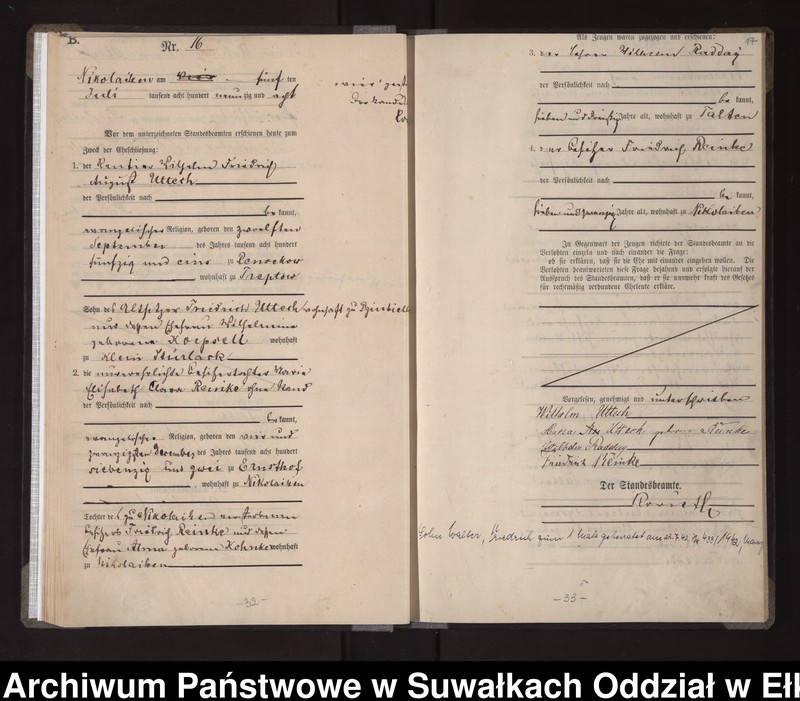 B.
Nr. 16
Nikolaiken am vier - fünf ten
Juli tausend acht hundert neunzig und acht
vier
Vor dem unterzeichneten Standesbeamten erschienen heute zum
Zweck der Eheschließung:
1. der Rentier Wilhelm Friedrich
August Uttech
der Persönlichkeit nach
be kannt,
evangelischer Religion, geboren den zwoelften
September des Jahres tausend acht hundert
fünfzig und eins zu
wohnhaft zu Treptow
Sohn des Altsitzer Friedrich Uttech wohnhaft zu
und dessen Ehefrau Wilhelmine
geborene Koepsell wohnhaft
zu Klein Stürlack
2. die unverehelichte Besitzertochter Marie
Elisabeth Clara Reinke ohne Stand
der Persönlichkeit nach
be kannt,
evangelischer Religion, geboren den vier und
zwanzigsten Dezember des Jahres tausend acht hundert
siebenzig und zwei zu Ernsthof
, wohnhaft zu Nikolaiken
Tochter des zu Nikolaiken verstorbenen
Besitzers Friedrich Reinke und dessen
Ehefrau Anna geborene Kohnke wohnhaft
zu Nikolaiken
-32-
17
Als Zeugen waren zugezogen und erschienen:
3. der Lehrer Wilhelm Radday
der Persönlichkeit nach
be kannt,
sieben und dreißig Jahre alt, wohnhaft zu Talten
4. der Besitzer Friedrich Reinke
der Persönlichkeit nach
be kannt,
sieben und zwanzig Jahre alt, wohnhaft zu Nikolaiken
In Gegenwart der Zeugen richtete der Standesbeamte an die
Verlobten einzeln und nach einander die Frage:
ob sie erklären, daß sie die Ehe mit einander eingehen wollen. Die
Verlobten beantworteten diese Frage bejahend und erfolgte hierauf der
Ausspruch des Standesbeamten, daß er sie nunmehr kraft des Gesetzes
für rechtmäßig verbundene Eheleute erkläre.
Vorgelesen, genehmigt und unterschrieben
Wilhelm Uttech
Uttech geborene Reinke
Wilhelm Radday
Friedrich Reinke
Der Standesbeamte.
Sohn Walter, Friedrich zum 1 Male geheiratet am
-33-
Archiwum Państwowe w Suwałkach Oddział w Ełk